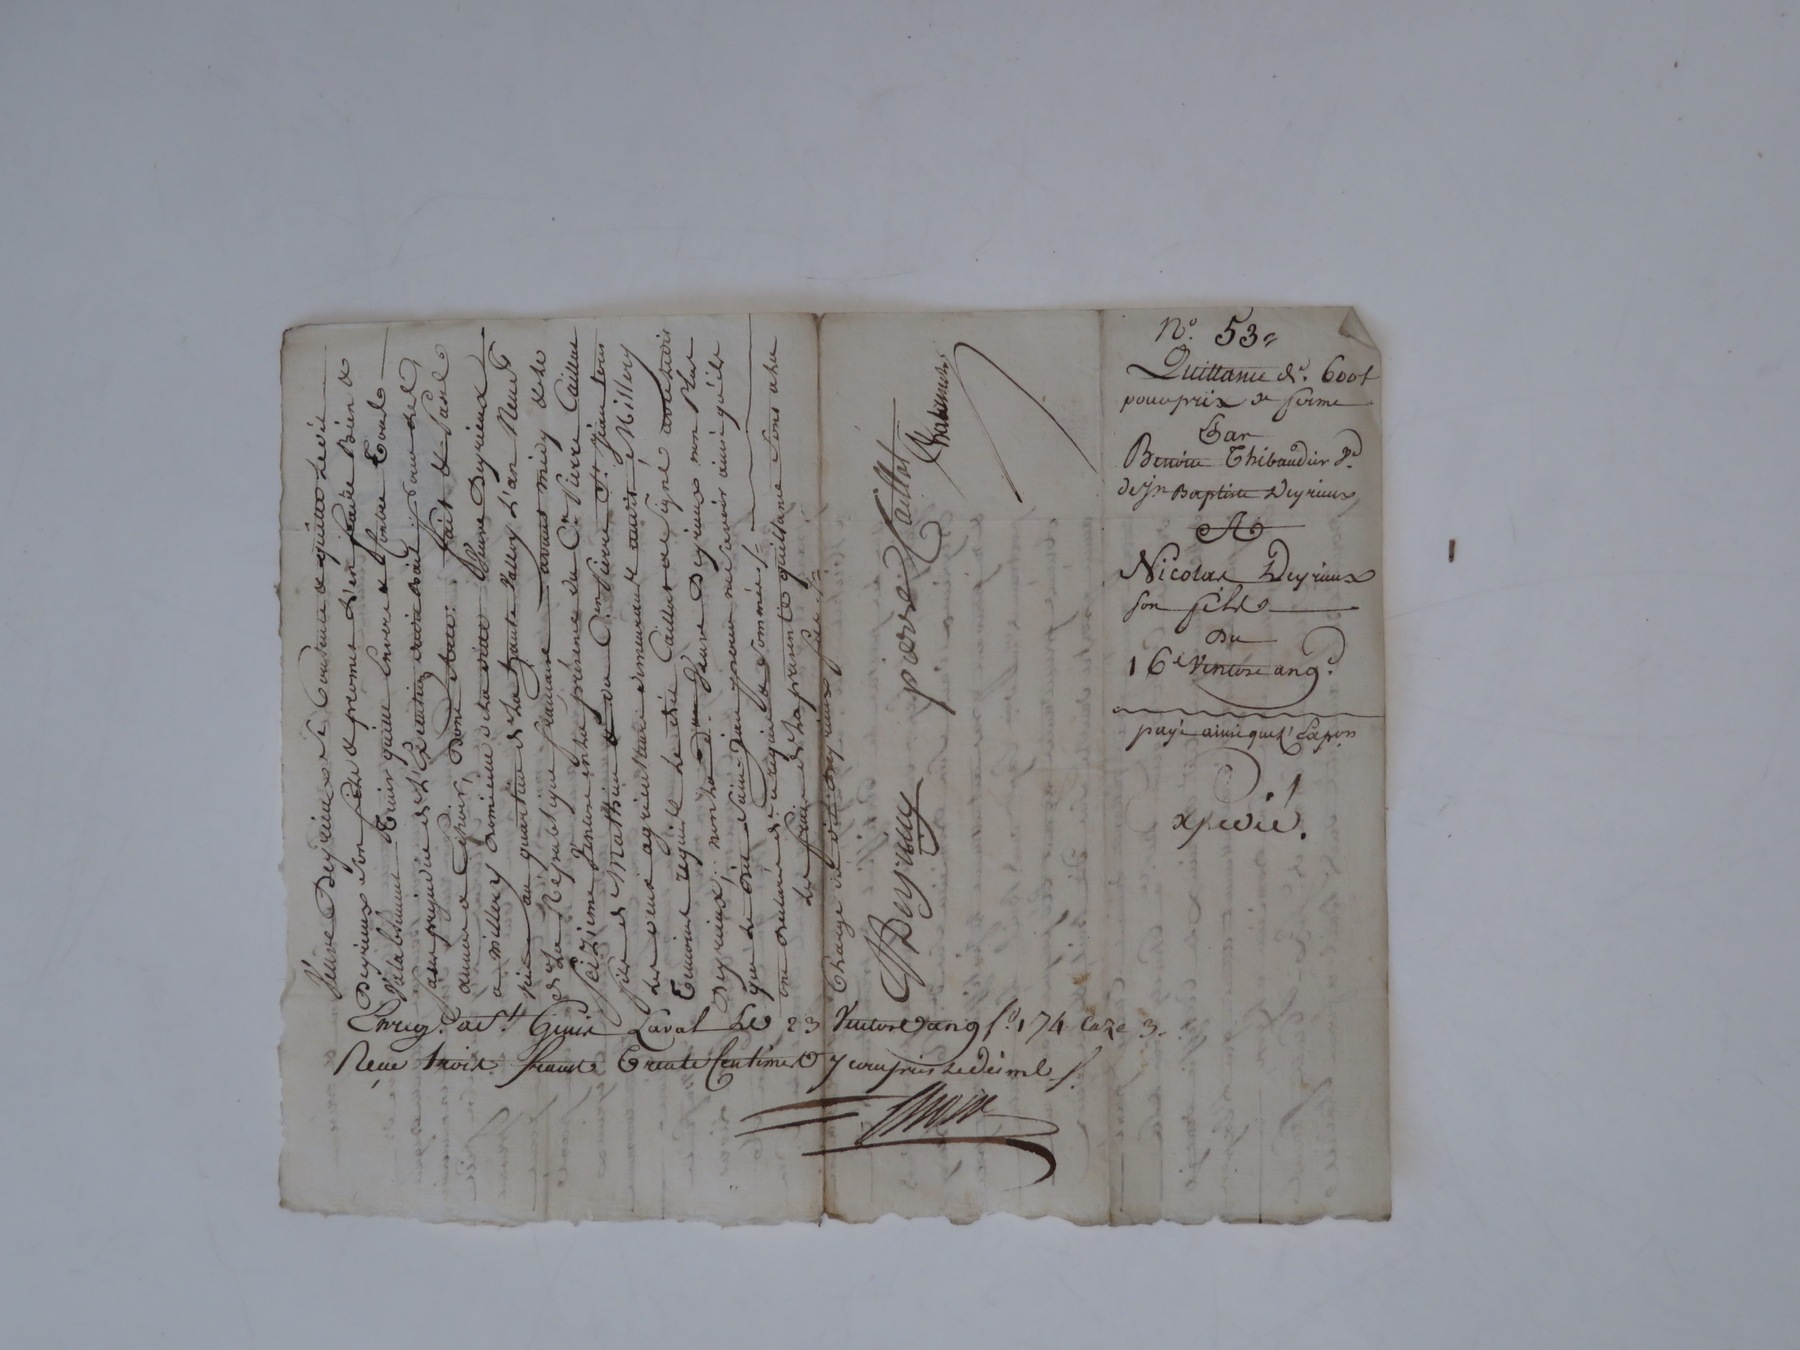 Veuve Deyrieux se Contente & quitte Ledit
Deyrieux son fils & promet L'en faire Bien &
Valablement tenir quitte Envers & Contre tous
sans prejudice de L'Exécution dudit Bail pour les
années a Echoir, Dont Acte. fait & Passé
a millery domicile de La ditte Veuve Deyrieux
sise au quartier de La haute Vallery L'an Neuf
de La République française avant midy & Le
Seizieme Ventose en La présence du Cn Pierre Caillat
fils de Mathieu & du Cn Pierre St jean tous
Les deux agriculteurs demeurant audit Millery
temoins requis Le dit Caillat a signé avec ledit
Deyrieux; non La d. Veuve Deyrieux non plus
que Le dit Saint jean pour ne savoir ainsi qu'ils
ont declaré de ce requis & sommés /.
Les frais de La presente quittance sont a La
Charge du dit Deyrieux fils /.
Deyrieux pierre Caillat
Enreg. a St Genis Laval Le 23 Ventose an 9 fo 174 Caze 3.
Reçu trois francs trente Centimes y compris Le décime /.
No. 53
Quittance de. 600 f
pour prix de ferme
Par
Benoite Thibaudier Ve.
de jn Baptiste Deyrieux
A
Nicolas Deyrieux
son fils
Du
16e Ventose an 9e.
payé ainsi que l'Expon
xpedié.